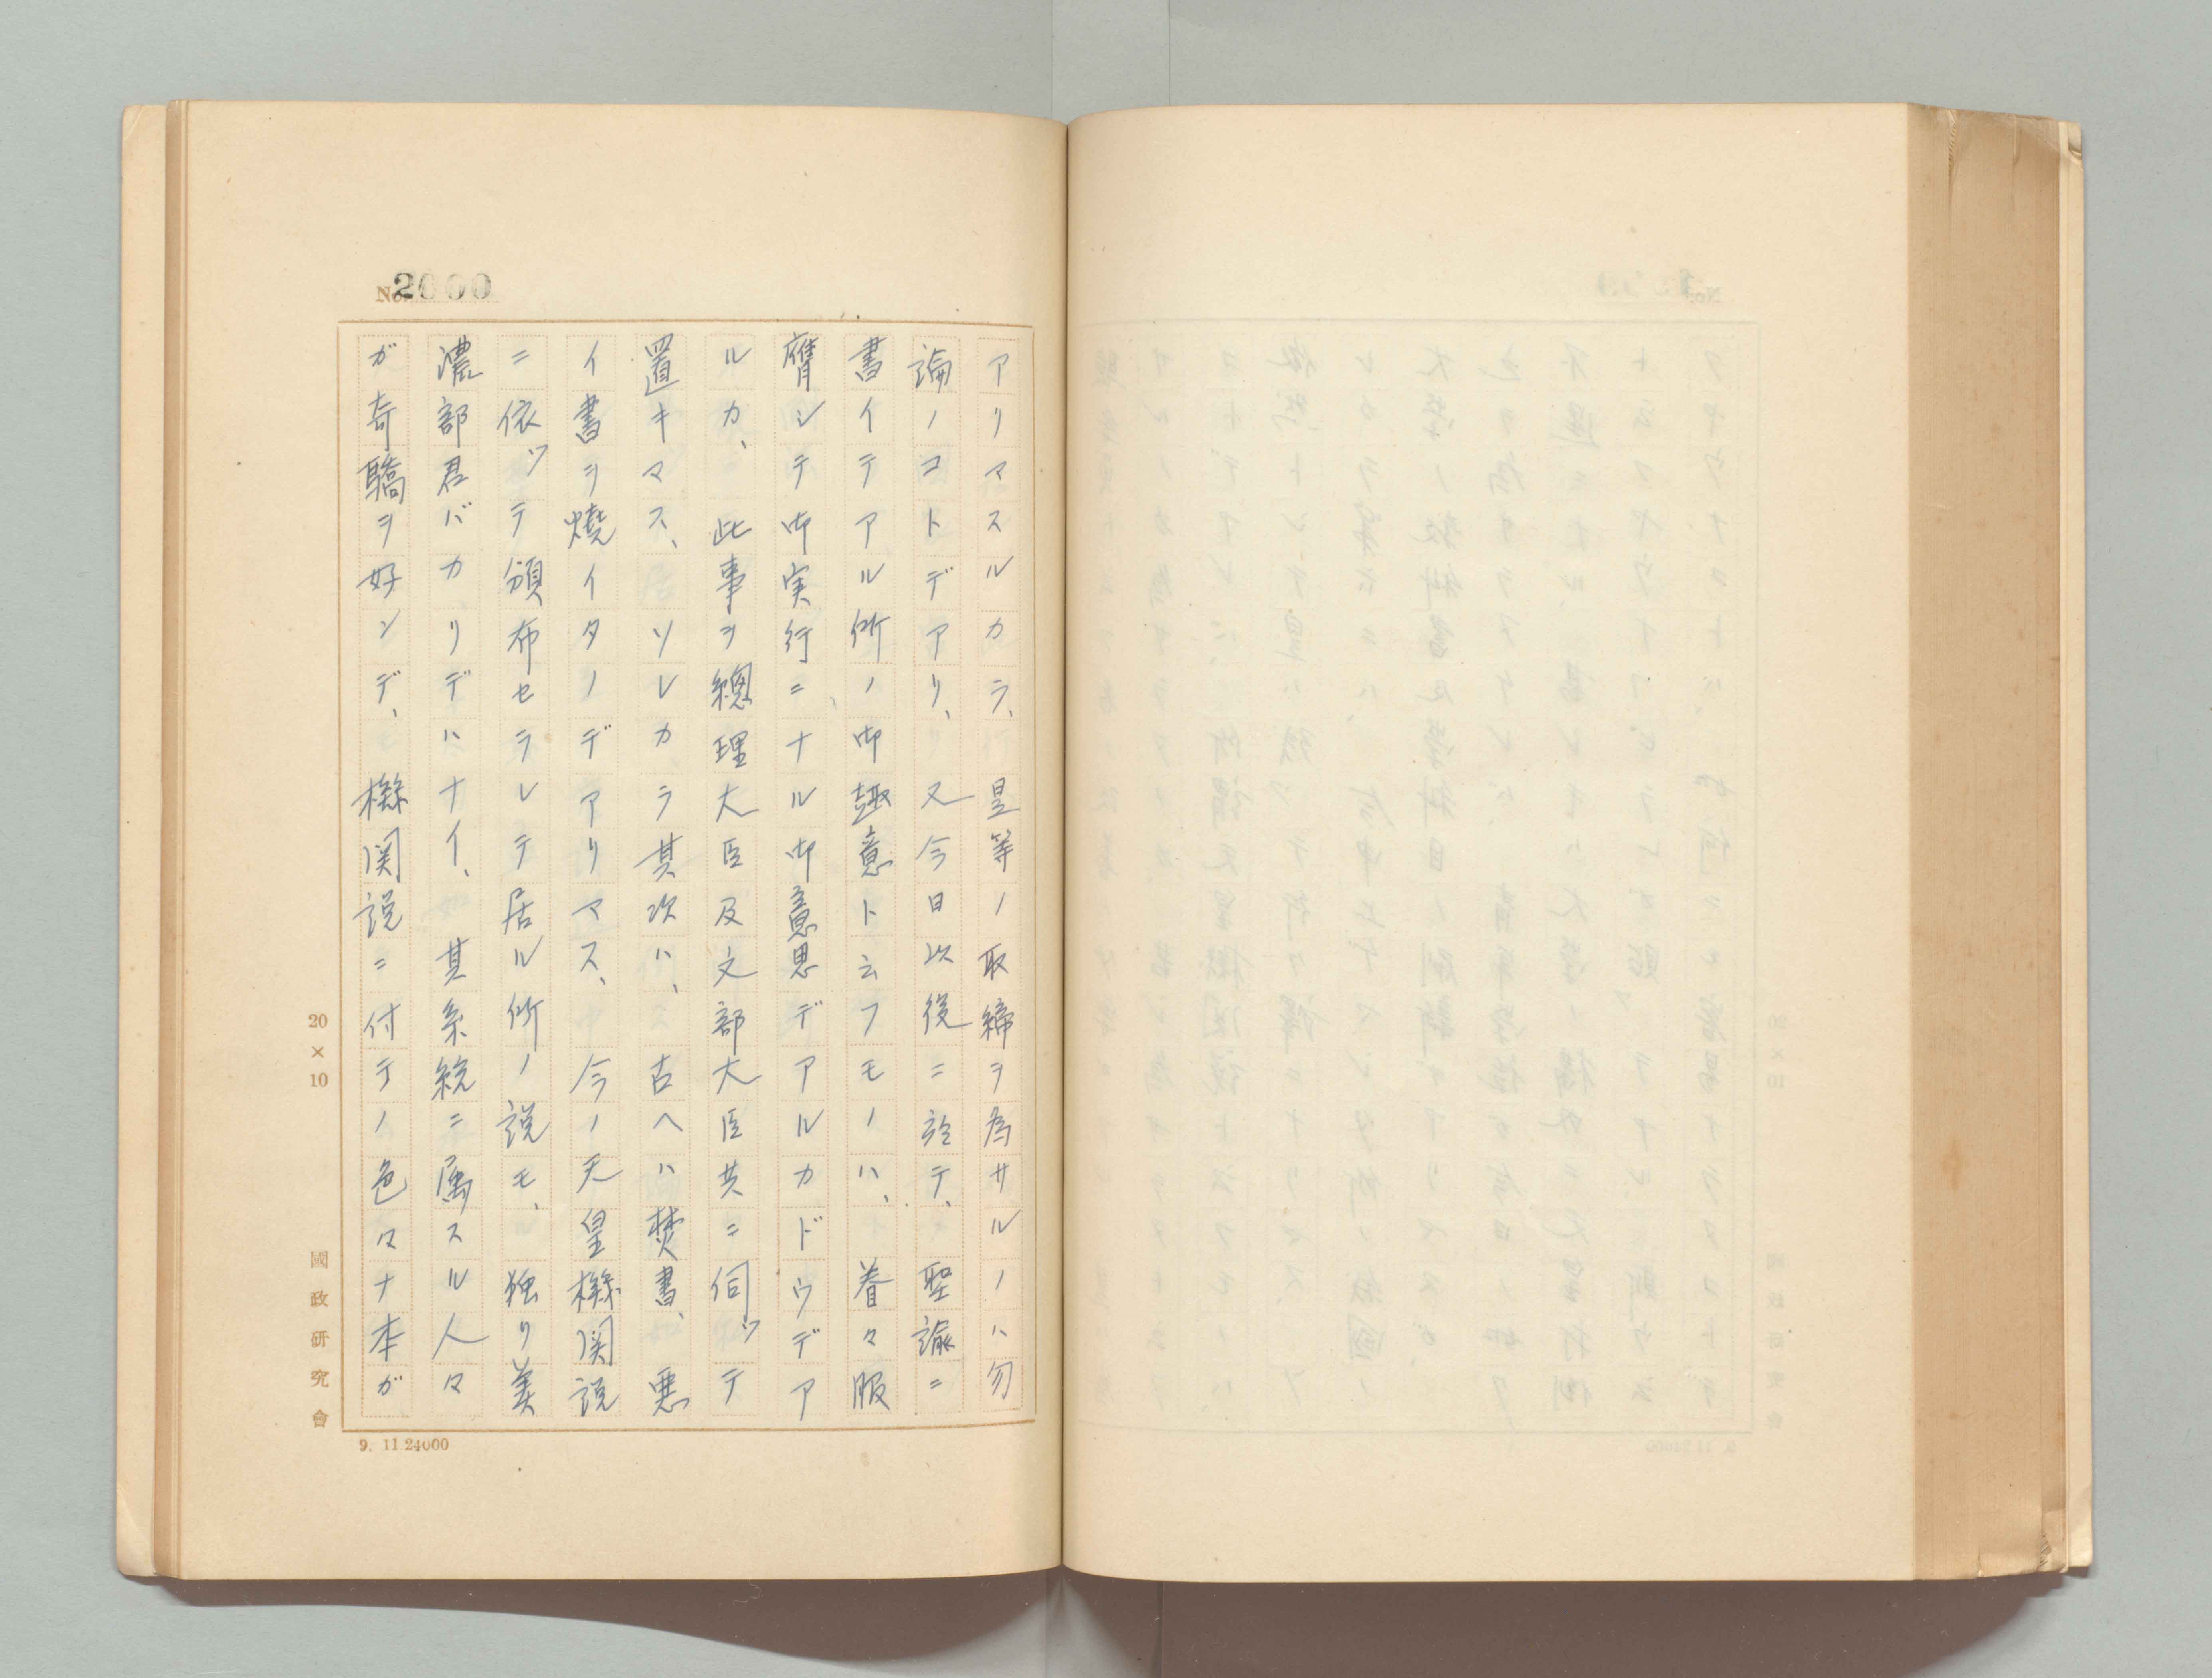 No. 2000
アリマスルカラ、是等ノ取締ヲ為サルノハ勿
論ノコトデアリ、又今日以後ニ於テ、聖諭ニ
書イテアル所ノ御趣意ト云フモノハ、眷々服
膺シテ御実行ニナル御意思デアルカドウデア
ルカ、此事ヲ總理大臣及文部大臣共ニ伺ッテ
置キマス、ソレカラ其次ハ、古ヘハ焚書、悪
イ書ヲ燒イタノデアリマス、今ノ天皇機関説
ニ依ッテ頒布セラレテ居ル所ノ説モ、独リ美
濃部君バカリデハナイ、其系統ニ属スル人々
ガ奇驕ヲ好ンデ、機関説ニ付テノ色々ナ本ガ
20×10
國政研究會
9. 11 24000